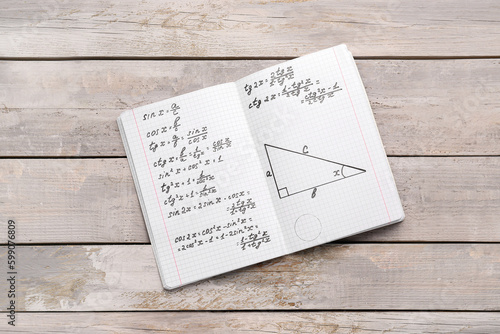 sin x = a/c
cos x = b/c
tg x = a/b = sin x/cos x
ctg x = b/a = 1/tg x = cos x/sin x
sin² x + cos² x = 1
tg² x + 1 = 1/cos² x
ctg² x + 1 = 1/sin² x
sin 2x = 2 sin x · cos x =
= 2 tg x/1 + tg² x
cos 2x = cos² x - sin² x =
= 2 cos² x - 1 = 1 - 2 sin² x =
= 1 - tg² x/1 + tg² x
tg 2x = 2 tg x/1 - tg² x
ctg 2x = 1 - tg² x/2 tg x =
= ctg² x - 1/2 ctg x
c
a
x
b
Adobe Stock | #599076809